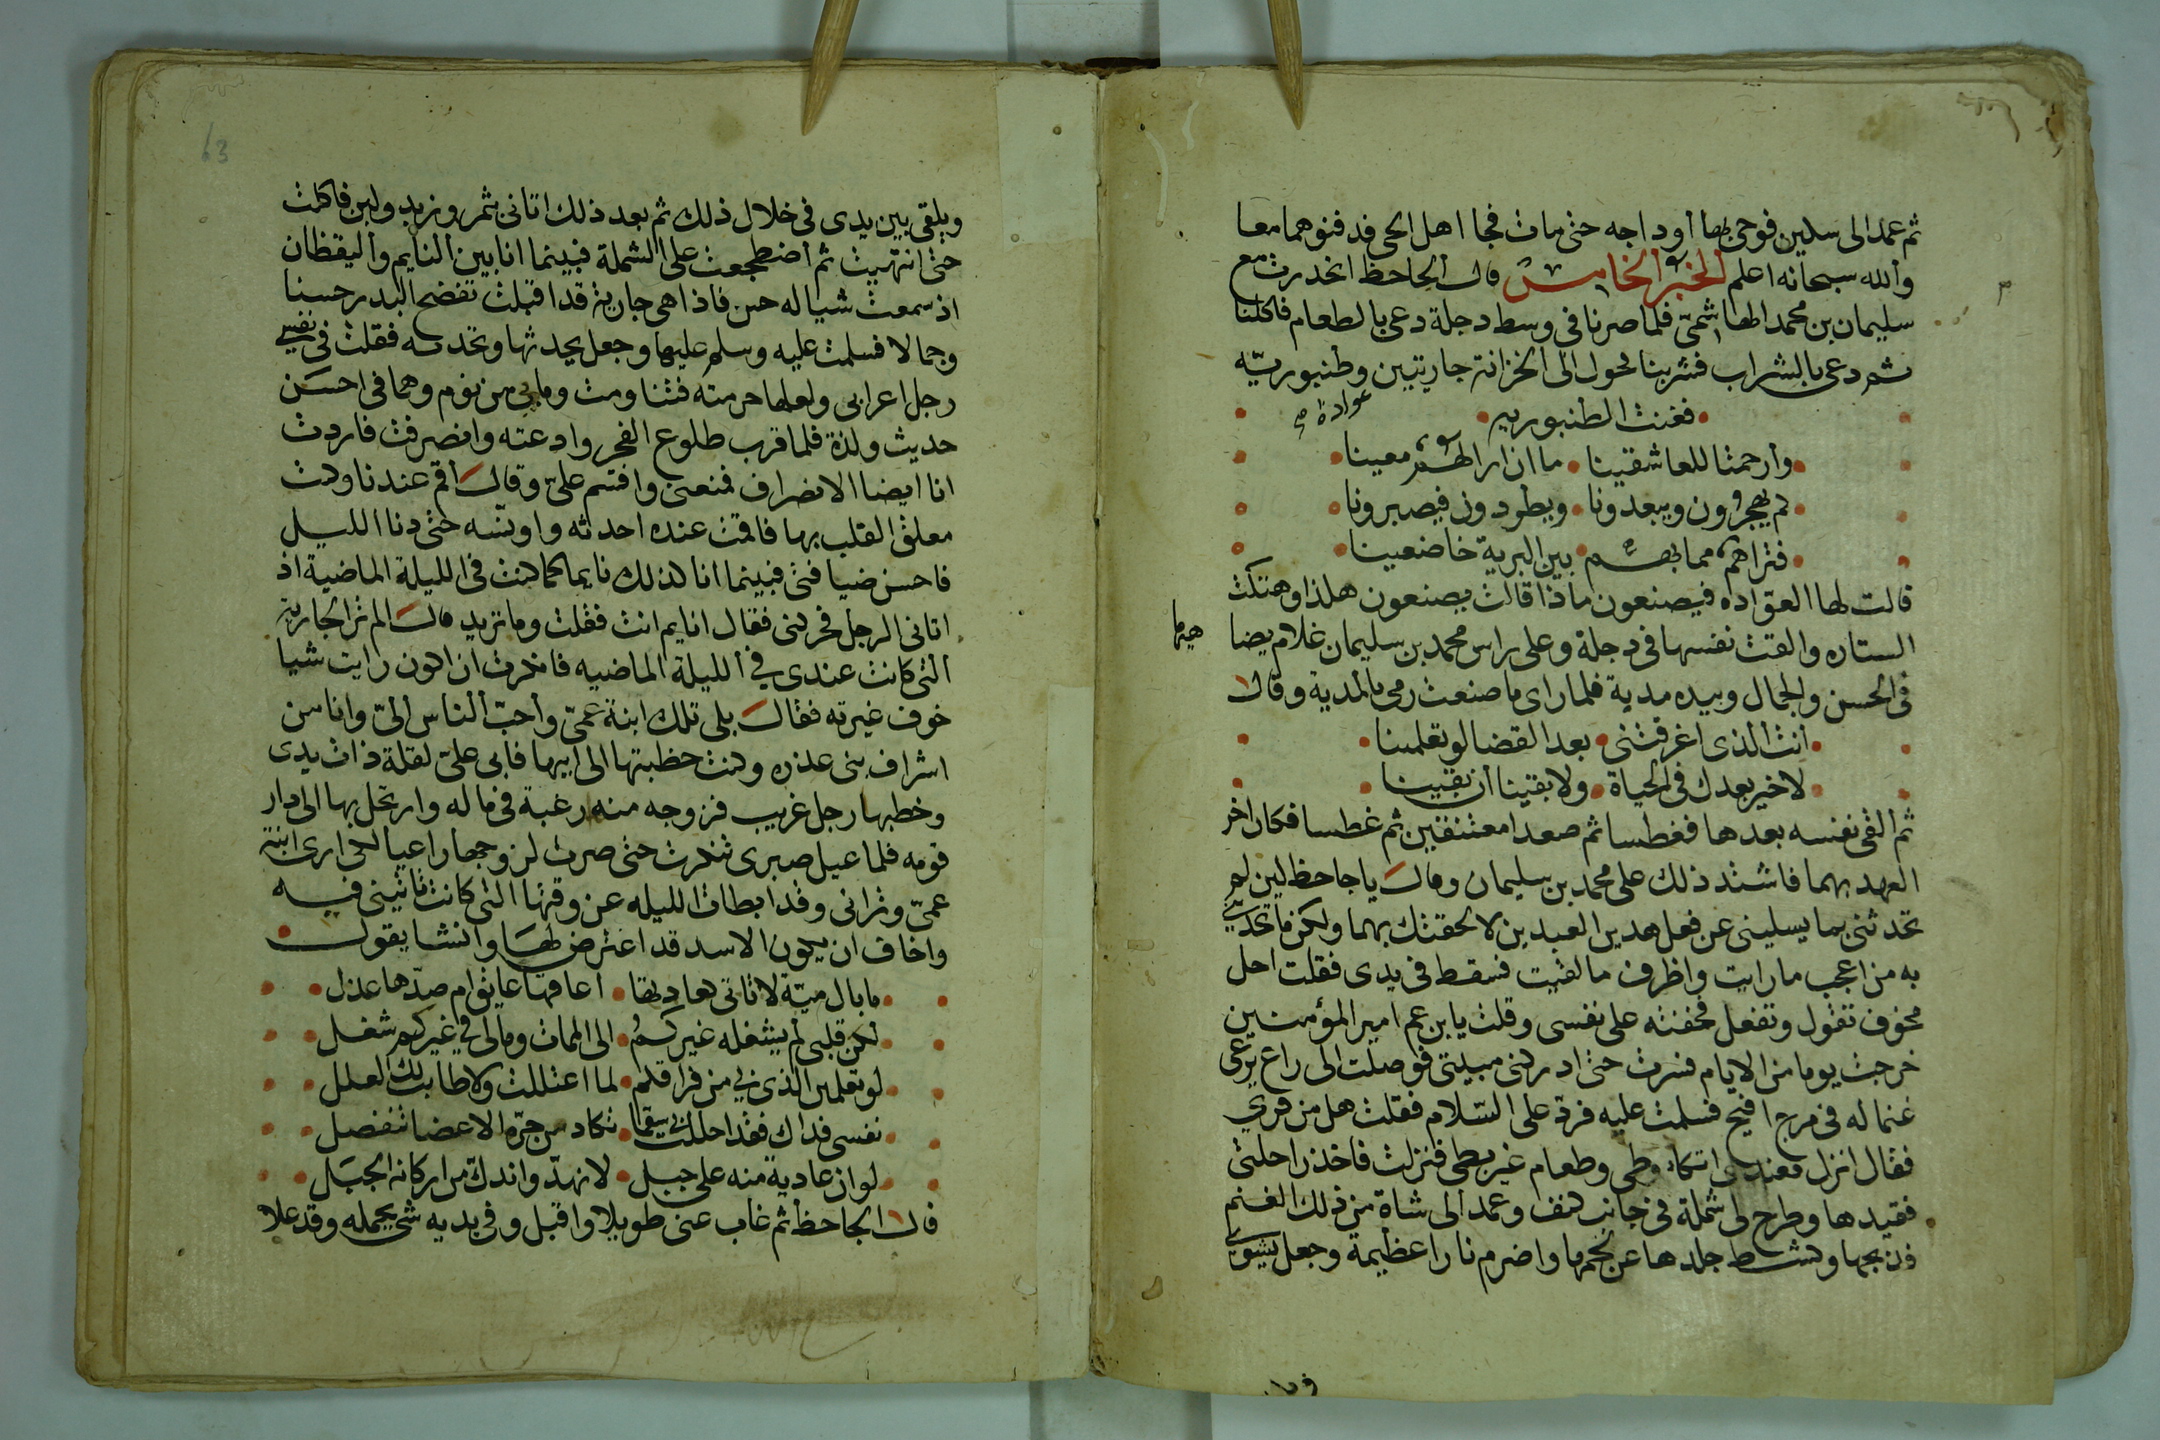 ثم عمد الى سكين فوجى بها أوداجه حتى مات فجا اهل الحى فدفنوهما معا
والله سبحانه اعلم الخبر الخامس قال الجاحظ انحدرت مع
سليمان بن محمد الهاشمىّ فلما صرنا فى وسط دجلة دعى بالطعام فاكلنا
ثم دعى بالشراب فشربنا الى الخزانة جاريتين وطنبوريّه
عوادة
فغنت الطنبوريه
وأرحمتا للعاشقينا ما ان ارا لهم معينا
كم يهجرون ويبعدونا ويطردون فيصبرونا
فتراهم مما بهم بين البرية خاضعينا
قالت لها العوّاده فيصنعون ماذا قالت يصنعون هكذا وهتكت
الستاره والقت نفسها فى دجلة وعلى راس محمد بن سليمان غلام يضا
هيها
فى الحسن والجمال وبيده مدية فلما راى ما صنعت رمى بالمدية وقال
أنت الذى اغرقتنى بعد القضا لو تعلمينا
لا خير بعدك فى الحياة ولا بقينا أن بقينا
ثم القى نفسه بعدها فغطسا ثم صعدا معتنقين ثم غطسا فكان اخر
العهد بهما فاشتد ذلك على محمد بن سليمان وقال يا جاحظ لين لم
تحدثنى بما يسلينى عن فعل هدين العبدين لالحقتك بهما ولكن ما تحدثنى
به من اعجب ما رايت واظرف ما لقيت فسقط فى يدى فقلت احل
مخوف تقول وتفعل فخفته على نفسى وقلت يا بن عم امير المؤمنين
خرجت يوما من الايام فسرت حتى ادركنى مبيتى فوصلت الى راع يرعى
غنما له فى مرج افيح فسلمت عليه فردّ على السّلام فقلت هل من قرى
فقال انزل فعندى وطى وطعام غير بطى فنزلت فاخذ راحلتى
فقيدها وطرح لى شملة فى جانب كنف وعمد الى شاة من ذلك الغنم
فذبحها وكشط جلدها عن لحمها واضرم نارا عظيمة وجعل يشوى
63
ويلقى بين يدى فى خلال ذلك ثم بعد ذلك اتانى بتمر وزبد ولبن فاكلت
حتى انتهيت ثم أضطجعت على الشملة فبينما انا بين النايم واليقظان
اذ سمعت شيا له حس فاذا هى جارية قد اقبلت تفضح البدر حسنا
وجمالا فسلمت عليه وسلم عليها وجعل يحدثها وتحدثه فقلت فى نفسى
رجل اعرابى ولعلها حرمته فتناومت وما بى من نوم وهما فى احسن
حديث ولذة فلما قرب طلوع الفجر وادعته وانصرفت فاردت
انا ايضا الانصراف فمنعنى واقسم علىّ وقال أقم عندنا وكنت
معلق القلب بها فاقمت عنده احدثه واونسه حتى دنا الليل
فاحسن ضيافتى فبينما انا كذلك نايما كما كنت فى الليلة الماضية اذ
اتانى الرجل فحركنى فقال انايم انت فقلت وما تريد قال الم تر الجارية
التى كانت عندى في الليلة الماضيه فانكرت ان اكون رايت شيا
خوف غيرته فقال بلى تلك ابنة عمىّ وأحبّ الناس الىّ وانا من
اشراف بنى عذره وكنت خطبتها الى ابيها فابى علىّ لقلة ذات يدى
وخطبها رجل غريب فزوجه منه رغبة فى ماله وارتحل بها الى دار
قومه فلما عيل صبرى تنكرت حتى صرت لزوجها راعيا لكى ارى ابنة
عمىّ وترانى وقد ابطات الليله عن وقتها التى كانت تاتينى فيه
واخاف ان يكون الاسد قد اعترض لها وانشا يقول
ما بال ميّة لا تاتى كعادتها اعاقها عايق ام صدّها عذل
لكن قلبى لم يشغله غيركم الى الممات ومالى في غيركم شغل
لو تعلمين الذى بى من فراقكم لما اعتللت ولا طابت لك العلل
نفسى فداك فقد احللت بى سقما تكاد من حرّه الاعضا تنفصل
لو ان عادية منه على جبل لانهدّ واندكّ من اركانه الجبل
قال الجاحظ ثم غاب عنى طويلا واقبل وفى يديه شى يحمله وقد علا